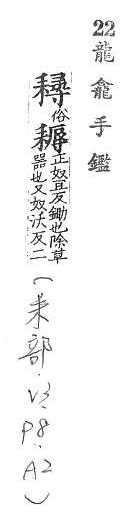 22龍龕手鑑
俗
耨正奴豆反鋤也除草
器也又奴沃反二
(耒部.V3.P8.A2)